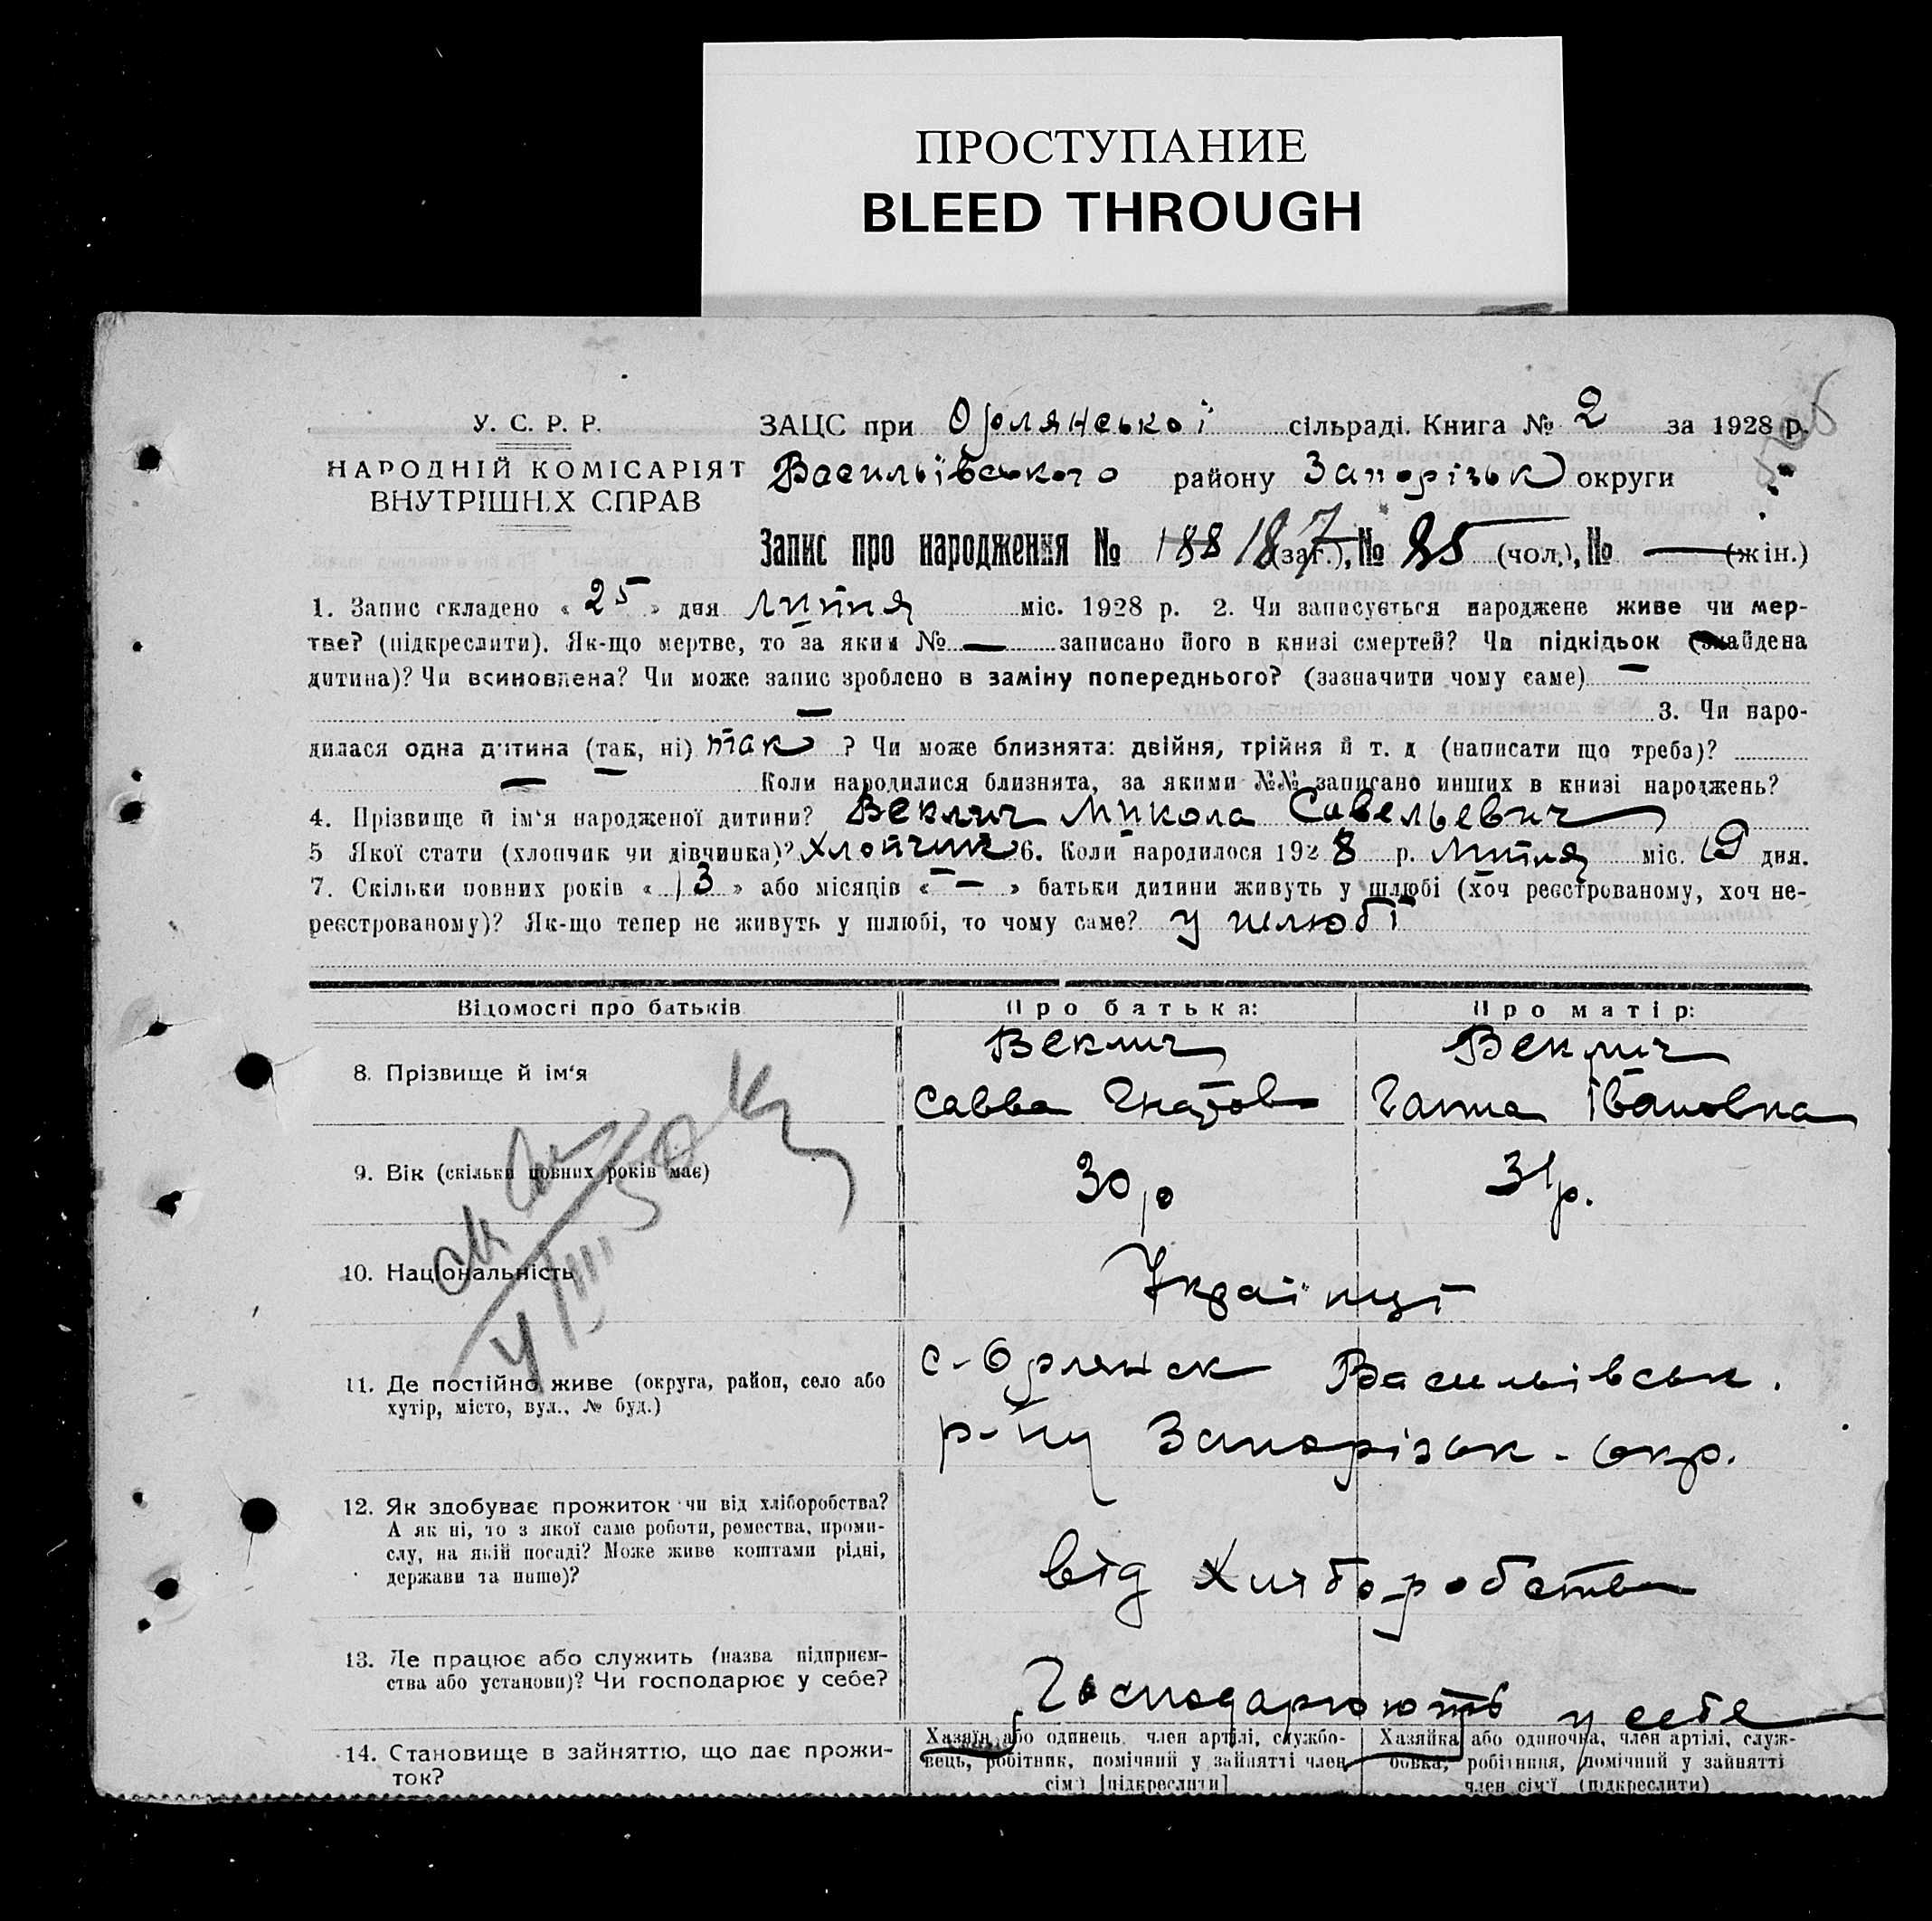 ПРОСТУПАНИЕ
BLEED THROUGH
У. С. Р. Р.
НАРОДНІЙ КОМІСАРІЯТ
ВНУТРІШНІХ СПРАВ
ЗАЦС при Орлянської сільраді. Книга № 2 за 1928 р.
Васильівського району Запорізьк округи
Запис про народження № 188 187 (заг.), № 85 (чол.), № — (жін.)
1. Запис складено « 25 » дня липня міс. 1928 р. 2. Чи записується народжене живе чи мер-
тве? (підкреслити). Як-що мертве, то за яким № — записано його в книзі смертей? Чи підкідьок (знайдена
дитина)? Чи всиновлена? Чи може запис зроблено в заміну попереднього? (зазначити чому саме) —
— 3. Чи наро-
дилася одна дитина (так, ні) так ? Чи може близнята: двійня, трійня й т. д (написати що треба)?
— Коли народилися близнята, за якими №№ записано инших в книзі народжень?
4. Прізвище й ім'я народженої дитини? Веклич Микола Савельевич
5 Якої стати (хлопчик чи дівчинка)? Хлопчик 6. Коли народилося 1928 р. Липня міс. 19 дня.
7. Скільки повних років « 13 » або місяців « — » батьки дитини живуть у шлюбі (хоч реєстрованому, хоч не-
реєстрованому)? Як-що тепер не живуть у шлюбі, то чому саме? у шлюбі
Відомості про батьків
Про батька:
Про матір:
8. Прізвище й ім'я
Веклич
Савва Гнатов
Веклич
Ганна Івановна
9. Вік (скільки повних років має)
30 р
31 р.
10. Національність
Українці
11. Де постійно живе (округа, район, село або
хутір, місто, вул., № буд.)
с-Орлянск Васильівськ.
р-ну Запорізьк-окр.
12. Як здобуває прожиток чи від хліборобства?
А як ні, то з якої саме роботи, ремества, проми-
слу, на якій посаді? Може живе коштами рідні,
держави та инше)?
від Хліборобства
13. Де працює або служить (назва підприєм-
ства або установи)? Чи господарює у себе?
Господарюють у себе
14. Становище в зайняттю, що дає прожи-
ток?
Хазяїн або одинець, член артілі, службо-
вець, робітник, помічний у зайнятті член
сім'ї [підкреслити]
Хазяйка або одиночка, член артілі, служ-
бовка, робітниця, помічний у зайнятті
член сім'ї (підкреслити)